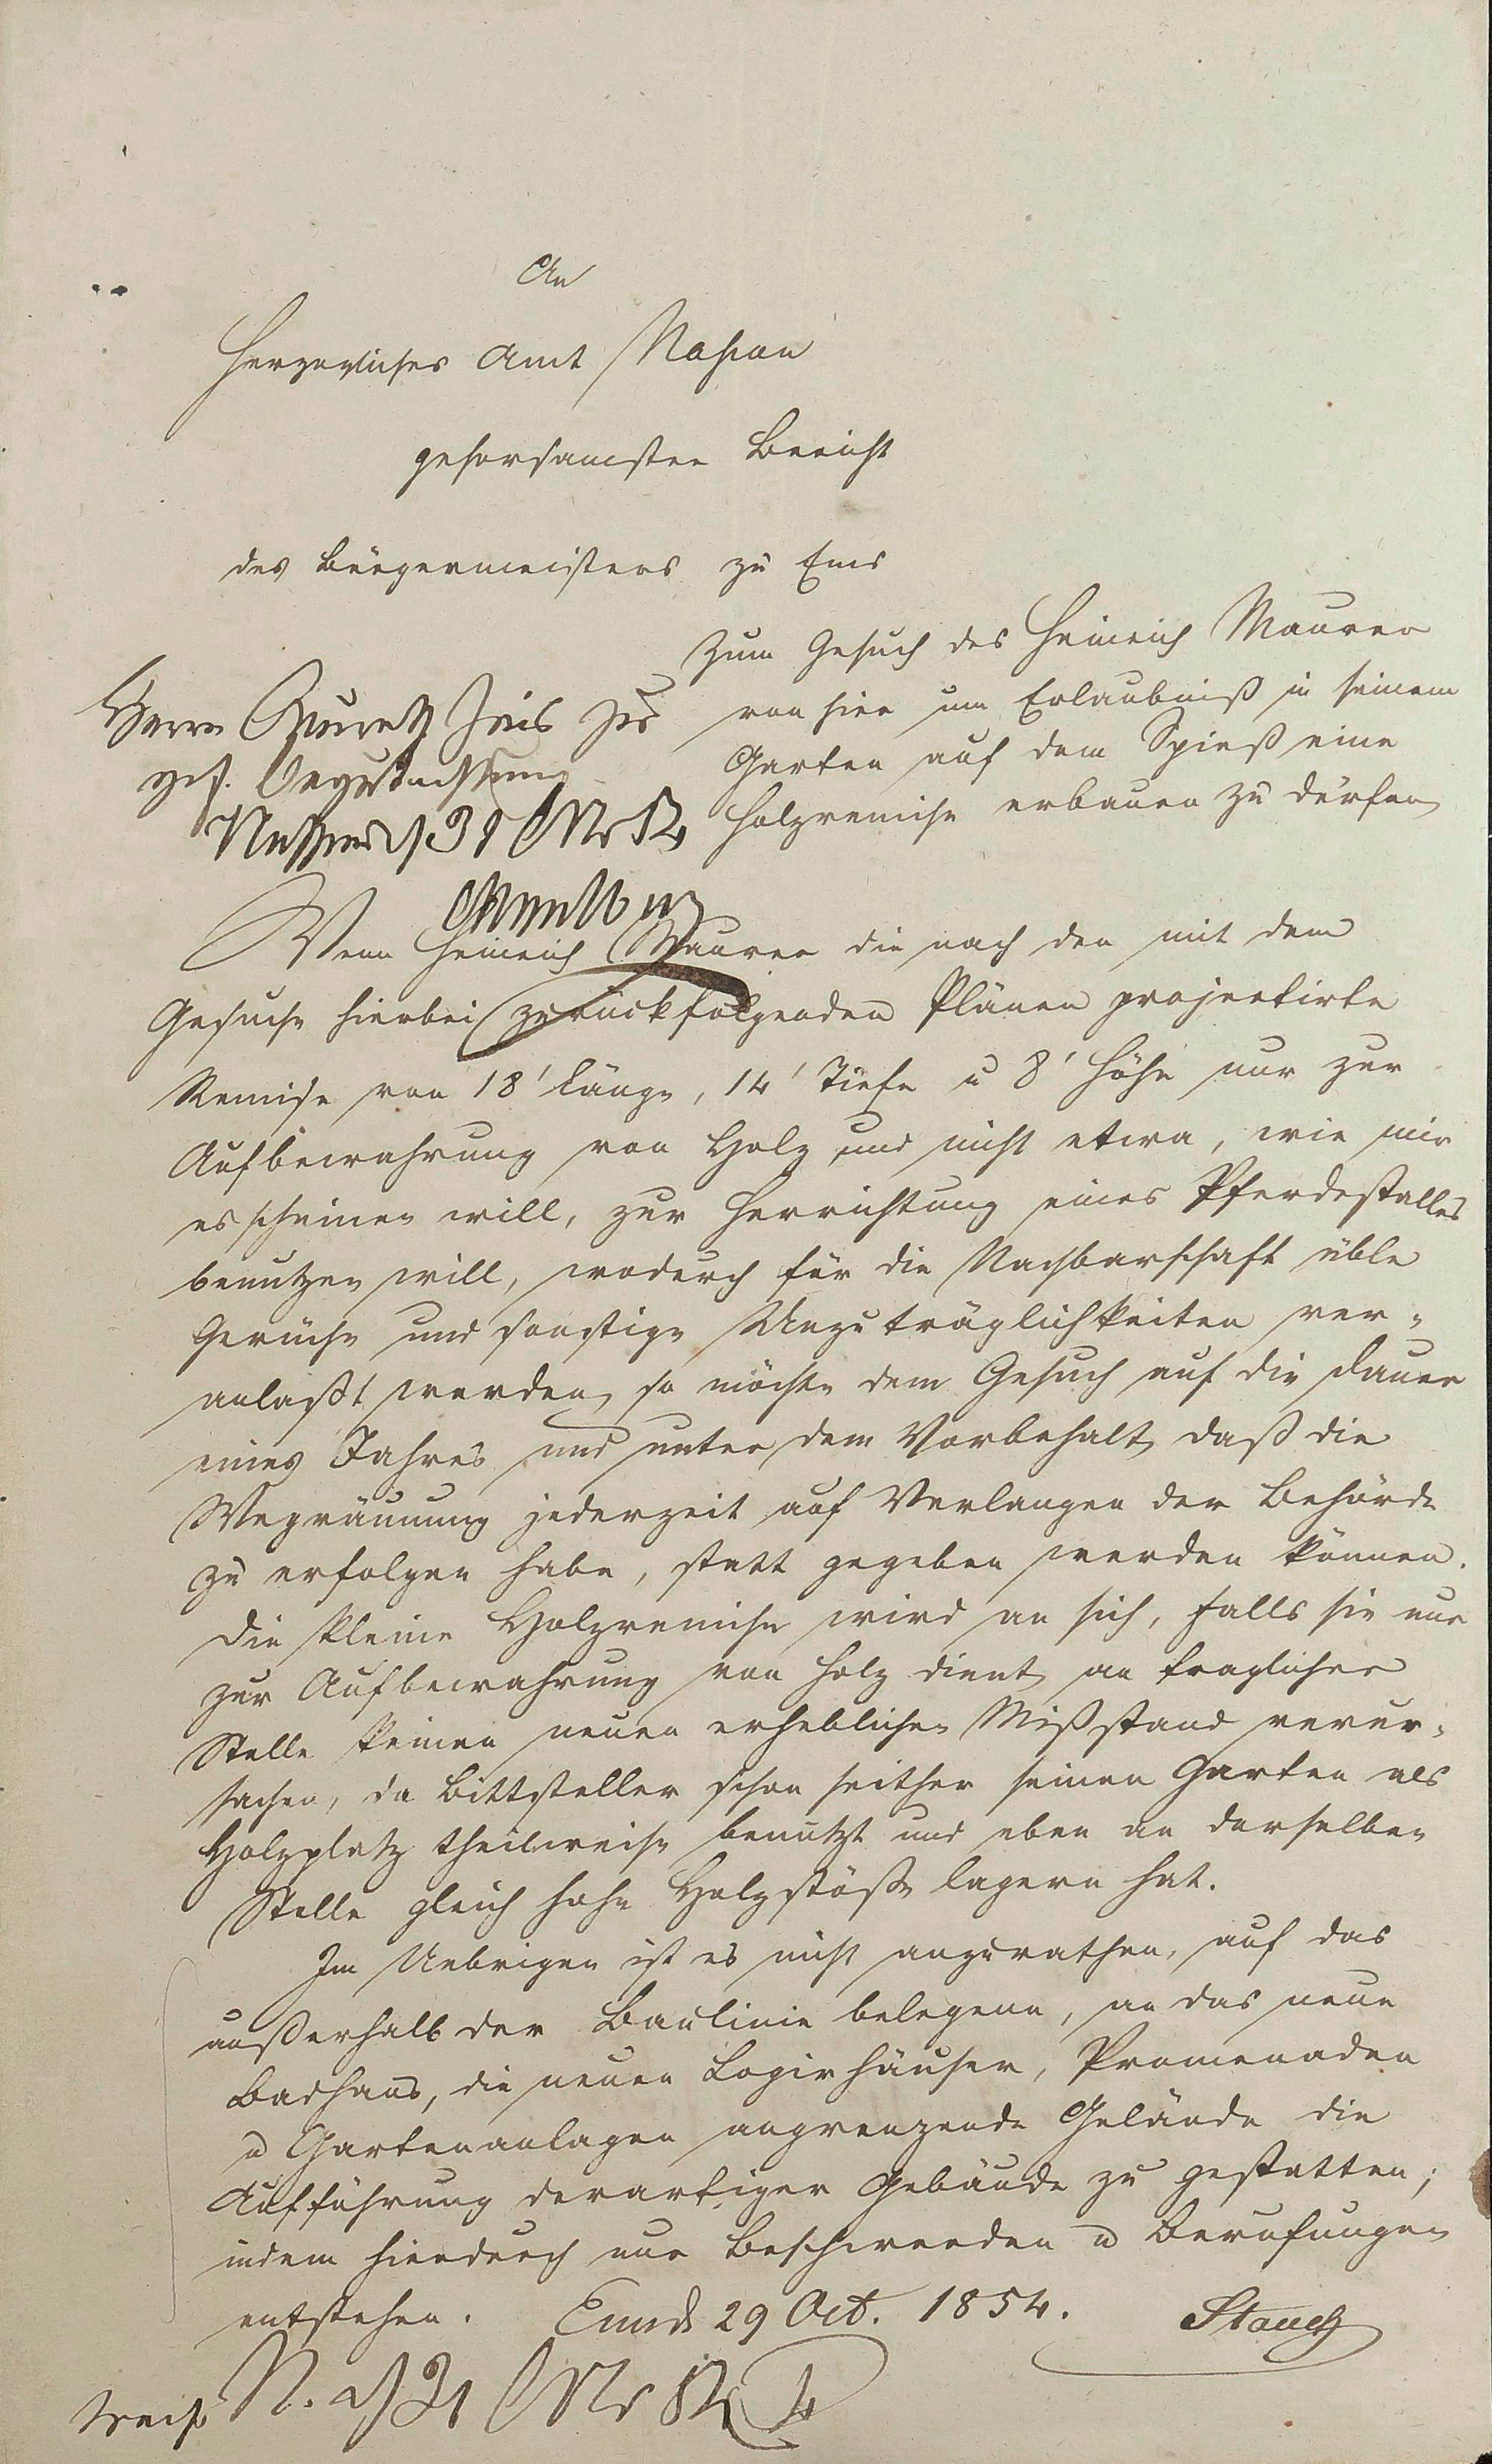 An
Herzogliches Amt Nassau
gehorsamster Bericht
des Bürgermeisters zu Ems
Zum Gesuch des Heinrich Maurer
von hier um Erlaubniß in seinem
Garten auf dem Spieß eine
Holzremise erbauen zu dürfen
Herrn zur
gef. Begutachtung
Nassau d 31
Wenn Heinrich Maurer die nach den mit dem
Gesuche hierbei zurückfolgenden Plänen projectirte
Remise von 18' Länge, 14' Tiefe u 8' Höhe nur zur
Aufbewahrung von Holz und nicht etwa, wie mir
es scheinen will, zur Herrichtung eines Pferdestalles
benutzen will, wodurch für die Nachbarschaft üble
Gerüche und sonstige Unzuträglichkeiten ver-
anlaßt werden, so möchte dem Gesuch auf die Dauer
eines Jahres und unter dem Vorbehalt, daß die
Wegräumung jederzeit auf Verlangen der Behörde
zu erfolgen habe, statt gegeben werden können.
Die kleine Holzremise wird an sich, falls sie nur
zur Aufbewahrung von Holz dient, an fraglicher
Stelle keinen neuen erheblichen Mißstand verur-
sachen, da Bittsteller schon seither seinen Garten als
Holzplatz theilweise benutzt und eben an derselben
Stelle gleich hohe Holzstöße lagern hat.
Im Uebrigen ist es nicht anzurathen, auf das
außerhalb der Baulinie belegene, an das neue
Badhaus, die neuen Logirhäuser, Promenaden
u Gartenanlagen angrenzende Gelände die
Aufführung derartiger Gebäude zu gestatten;
indem hierdurch nur Beschwerden u Berufungen
entstehen. Ems d 29 Oct. 1854. Stauch
N. d 31